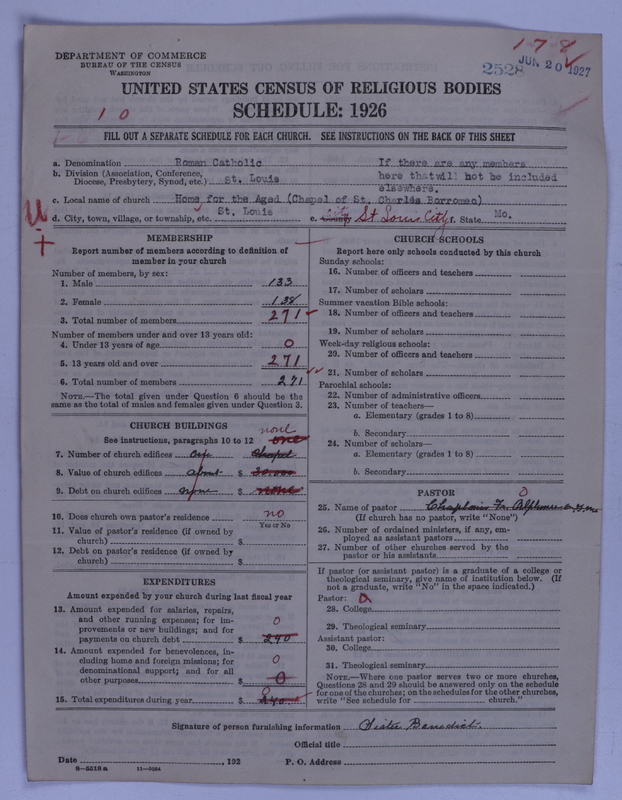 178
2528 JUN 20 1927
DEPARTMENT OF COMMERCE
BUREAU OF THE CENSUS
WASHINGTON
UNITED STATES CENSUS OF RELIGIOUS BODIES
SCHEDULE: 1926
10
FILL OUT A SEPARATE SCHEDULE FOR EACH CHURCH. SEE INSTRUCTIONS ON THE BACK OF THIS SHEET
a. Denomination Roman Catholic
b. Division (Association, Conference, Diocese, Presbytery, Synod, etc.) St. Louis
If there are any members
here that will not be included
elsewhere.
c. Local name of church Home for the Aged (Chapel of St. Charles Borromeo)
d. City, town, village, or township, etc. St. Louis e. County City St Louis City f. State Mo.
MEMBERSHIP
Report number of members according to definition of
member in your church
Number of members, by sex:
1. Male 133
2. Female 138
3. Total number of members 271
Number of members under and over 13 years old:
4. Under 13 years of age 0
5. 13 years old and over 271
6. Total number of members 271
NOTE.—The total given under Question 6 should be
same as the total of males and females given under Question 3.
CHURCH BUILDINGS
See instructions, paragraphs 10 to 12 none one
7. Number of church edifices One Chapel
8. Value of church edifices about $ 20.000
9. Debt on church edifices none $ none
10. Does church own pastor's residence no
Yes or No
11. Value of pastor's residence (if owned by
church) $
12. Debt on pastor's residence (if owned by
church) $
EXPENDITURES
Amount expended by your church during last fiscal year
13. Amount expended for salaries, repairs,
and other running expenses; for im-
provements or new buildings; and for
payments on church debt $ 0 240
14. Amount expended for benevolences, in-
cluding home and foreign missions; for
denominational support; and for all
other purposes $ 0 0
15. Total expenditures during year $ 0 240
CHURCH SCHOOLS
Report here only schools conducted by this church
Sunday schools:
16. Number of officers and teachers
17. Number of scholars
Summer vacation Bible schools:
18. Number of officers and teachers
19. Number of scholars
Week-day religious schools:
20. Number of officers and teachers
21. Number of scholars
Parochial schools:
22. Number of administrative officers
23. Number of teachers—
a. Elementary (grades 1 to 8)
b. Secondary
24. Number of scholars—
a. Elementary (grades 1 to 8)
b. Secondary
PASTOR 0
25. Name of pastor Chaplain Fr. Alphonse
(If church has no pastor, write "None")
26. Number of ordained ministers, if any, em-
ployed as assistant pastors
27. Number of other churches served by the
pastor or his assistants
If pastor (or assistant pastor) is a graduate of a college or
theological seminary, give name of institution below. (If
not a graduate, write "No" in the space indicated.)
Pastor:
28. College
29. Theological seminary
Assistant pastor:
30. College
31. Theological seminary
NOTE.—Where one pastor serves two or more churches,
Questions 28 and 29 should be answered only on the schedule
for one of the churches; on the schedules for the other churches,
write "See schedule for church."
Signature of person furnishing information Sister Benedict.
Official title
Date , 192 P. O. Address
8—5518 a 11—9064